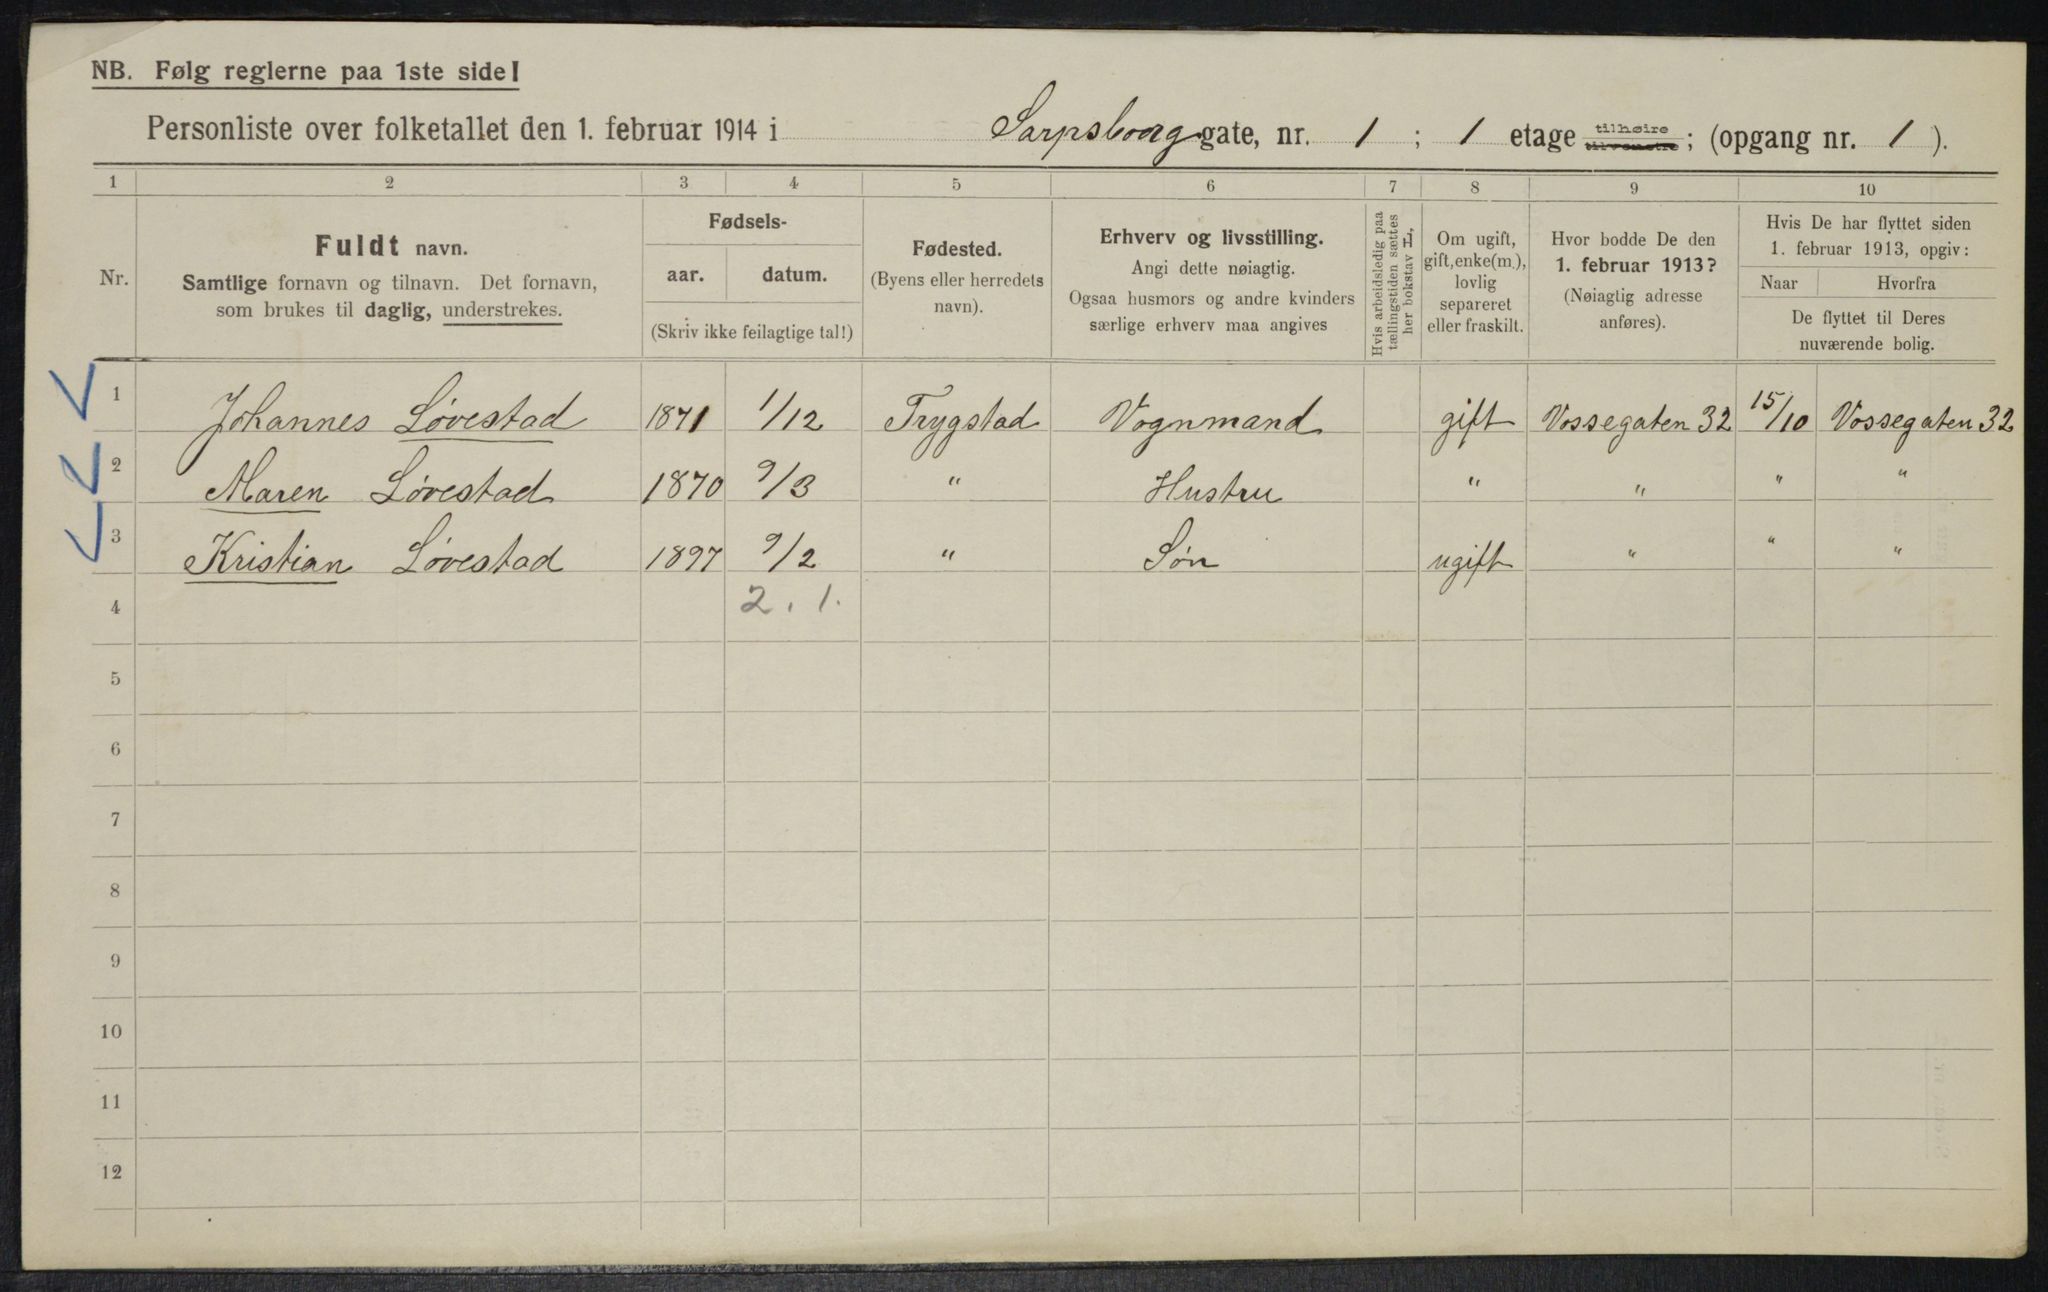 NB. Følg reglerne paa 1ste side!
Personliste over folketallet den 1. februar 1914 i Sarpsborg gate, nr. 1 ; 1 etage tilhøire tilvenstre ; (opgang nr. 1 ).
1 2 3 4 5 6 7 8 9 10
Nr.
Fuldt navn.
Samtlige fornavn og tilnavn. Det fornavn,
som brukes til daglig, understrekes.
Fødsels-
aar. datum.
(Skriv ikke feilagtige tal!)
Fødested.
(Byens eller herredets
navn).
Erhverv og livsstilling.
Angi dette nøiagtig.
Ogsaa husmors og andre kvinders
særlige erhverv maa angives
Hvis arbeidsledig paa
tællingstiden sættes
her bokstav L,
Om ugift,
gift, enke(m.),
lovlig
separeret
eller fraskilt.
Hvor bodde De den
1. februar 1913?
(Nøiagtig adresse
anføres).
Hvis De har flyttet siden
1. februar 1913, opgiv:
Naar Hvorfra
De flyttet til Deres
nuværende bolig.
1 Johannes Løvestad 1871 1/12 Trygstad Vognmand gift Vossegaten 32 15/10 Vossegaten 32
2 Maren Løvestad 1870 9/3 " Hustru " " " "
3 Kristian Løvestad 1897 9/2 " Søn ugift " " "
4 2. 1.
5
6
7
8
9
10
11
12